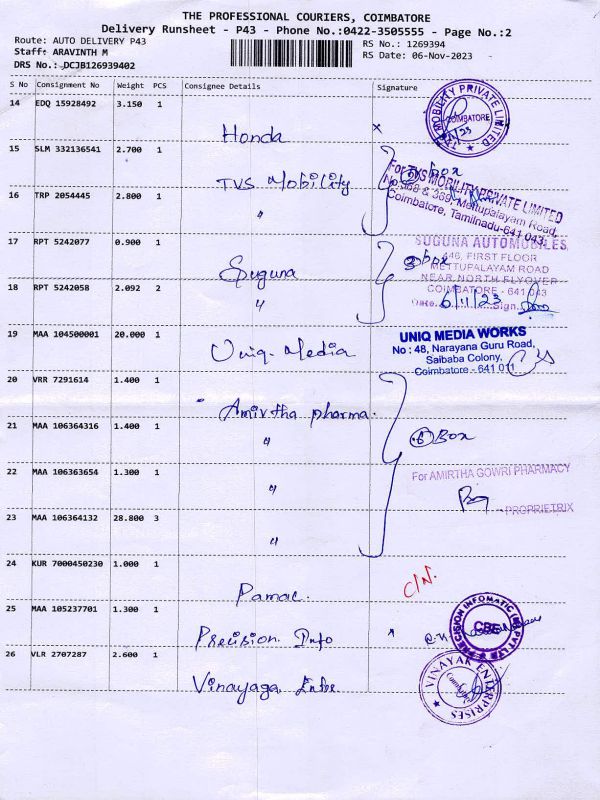 THE PROFESSIONAL COURIERS, COIMBATORE
Delivery Runsheet - P43 - Phone No.:0422-3505555 - Page No.:2
Route: AUTO DELIVERY P43
Staff: ARAVINTH M
DRS No.: DCJB126939402
RS No.: 1269394
RS Date: 06-Nov-2023
S No Consignment No Weight PCS Consignee Details Signature
14 EDQ 15928492 3.150 1
Honda
MOBILITY PRIVATE LIMITED
COIMBATORE
15 SLM 332136541 2.700 1
TVS Mobility
box
For TVS MOBILITY PRIVATE LIMITED
No.368 & 369, Mettupalayam Road,
Coimbatore, Tamilnadu-641 043.
16 TRP 2054445 2.800 1
"
17 RPT 5242077 0.900 1
Suguna
③ box
SUGUNA AUTOMOBILES
646, FIRST FLOOR
METTUPALAYAM ROAD
NEAR NORTH FLYOVER
COIMBATORE - 641 043
Date 6/11/23 Sign.
18 RPT 5242058 2.092 2
"
19 MAA 104500001 20.000 1
Uniq. Media
UNIQ MEDIA WORKS
No : 48, Narayana Guru Road,
Saibaba Colony,
Coimbatore - 641 011
20 VRR 7291614 1.400 1
Amirtha pharma.
21 MAA 106364316 1.400 1
"
⑥ Box
22 MAA 106363654 1.300 1
"
For AMIRTHA GOWRI PHARMACY
PROPRIETRIX
23 MAA 106364132 28.800 3
"
24 KUR 7000450230 1.000 1
Pamac.
C/N.
25 MAA 105237701 1.300 1
Precision Info
PRECISION INFOMATIC (M) PVT LTD
CBE
26 VLR 2707287 2.600 1
Vinayaga Enter
VINAYAK ENTERPRISES
Coimbatore